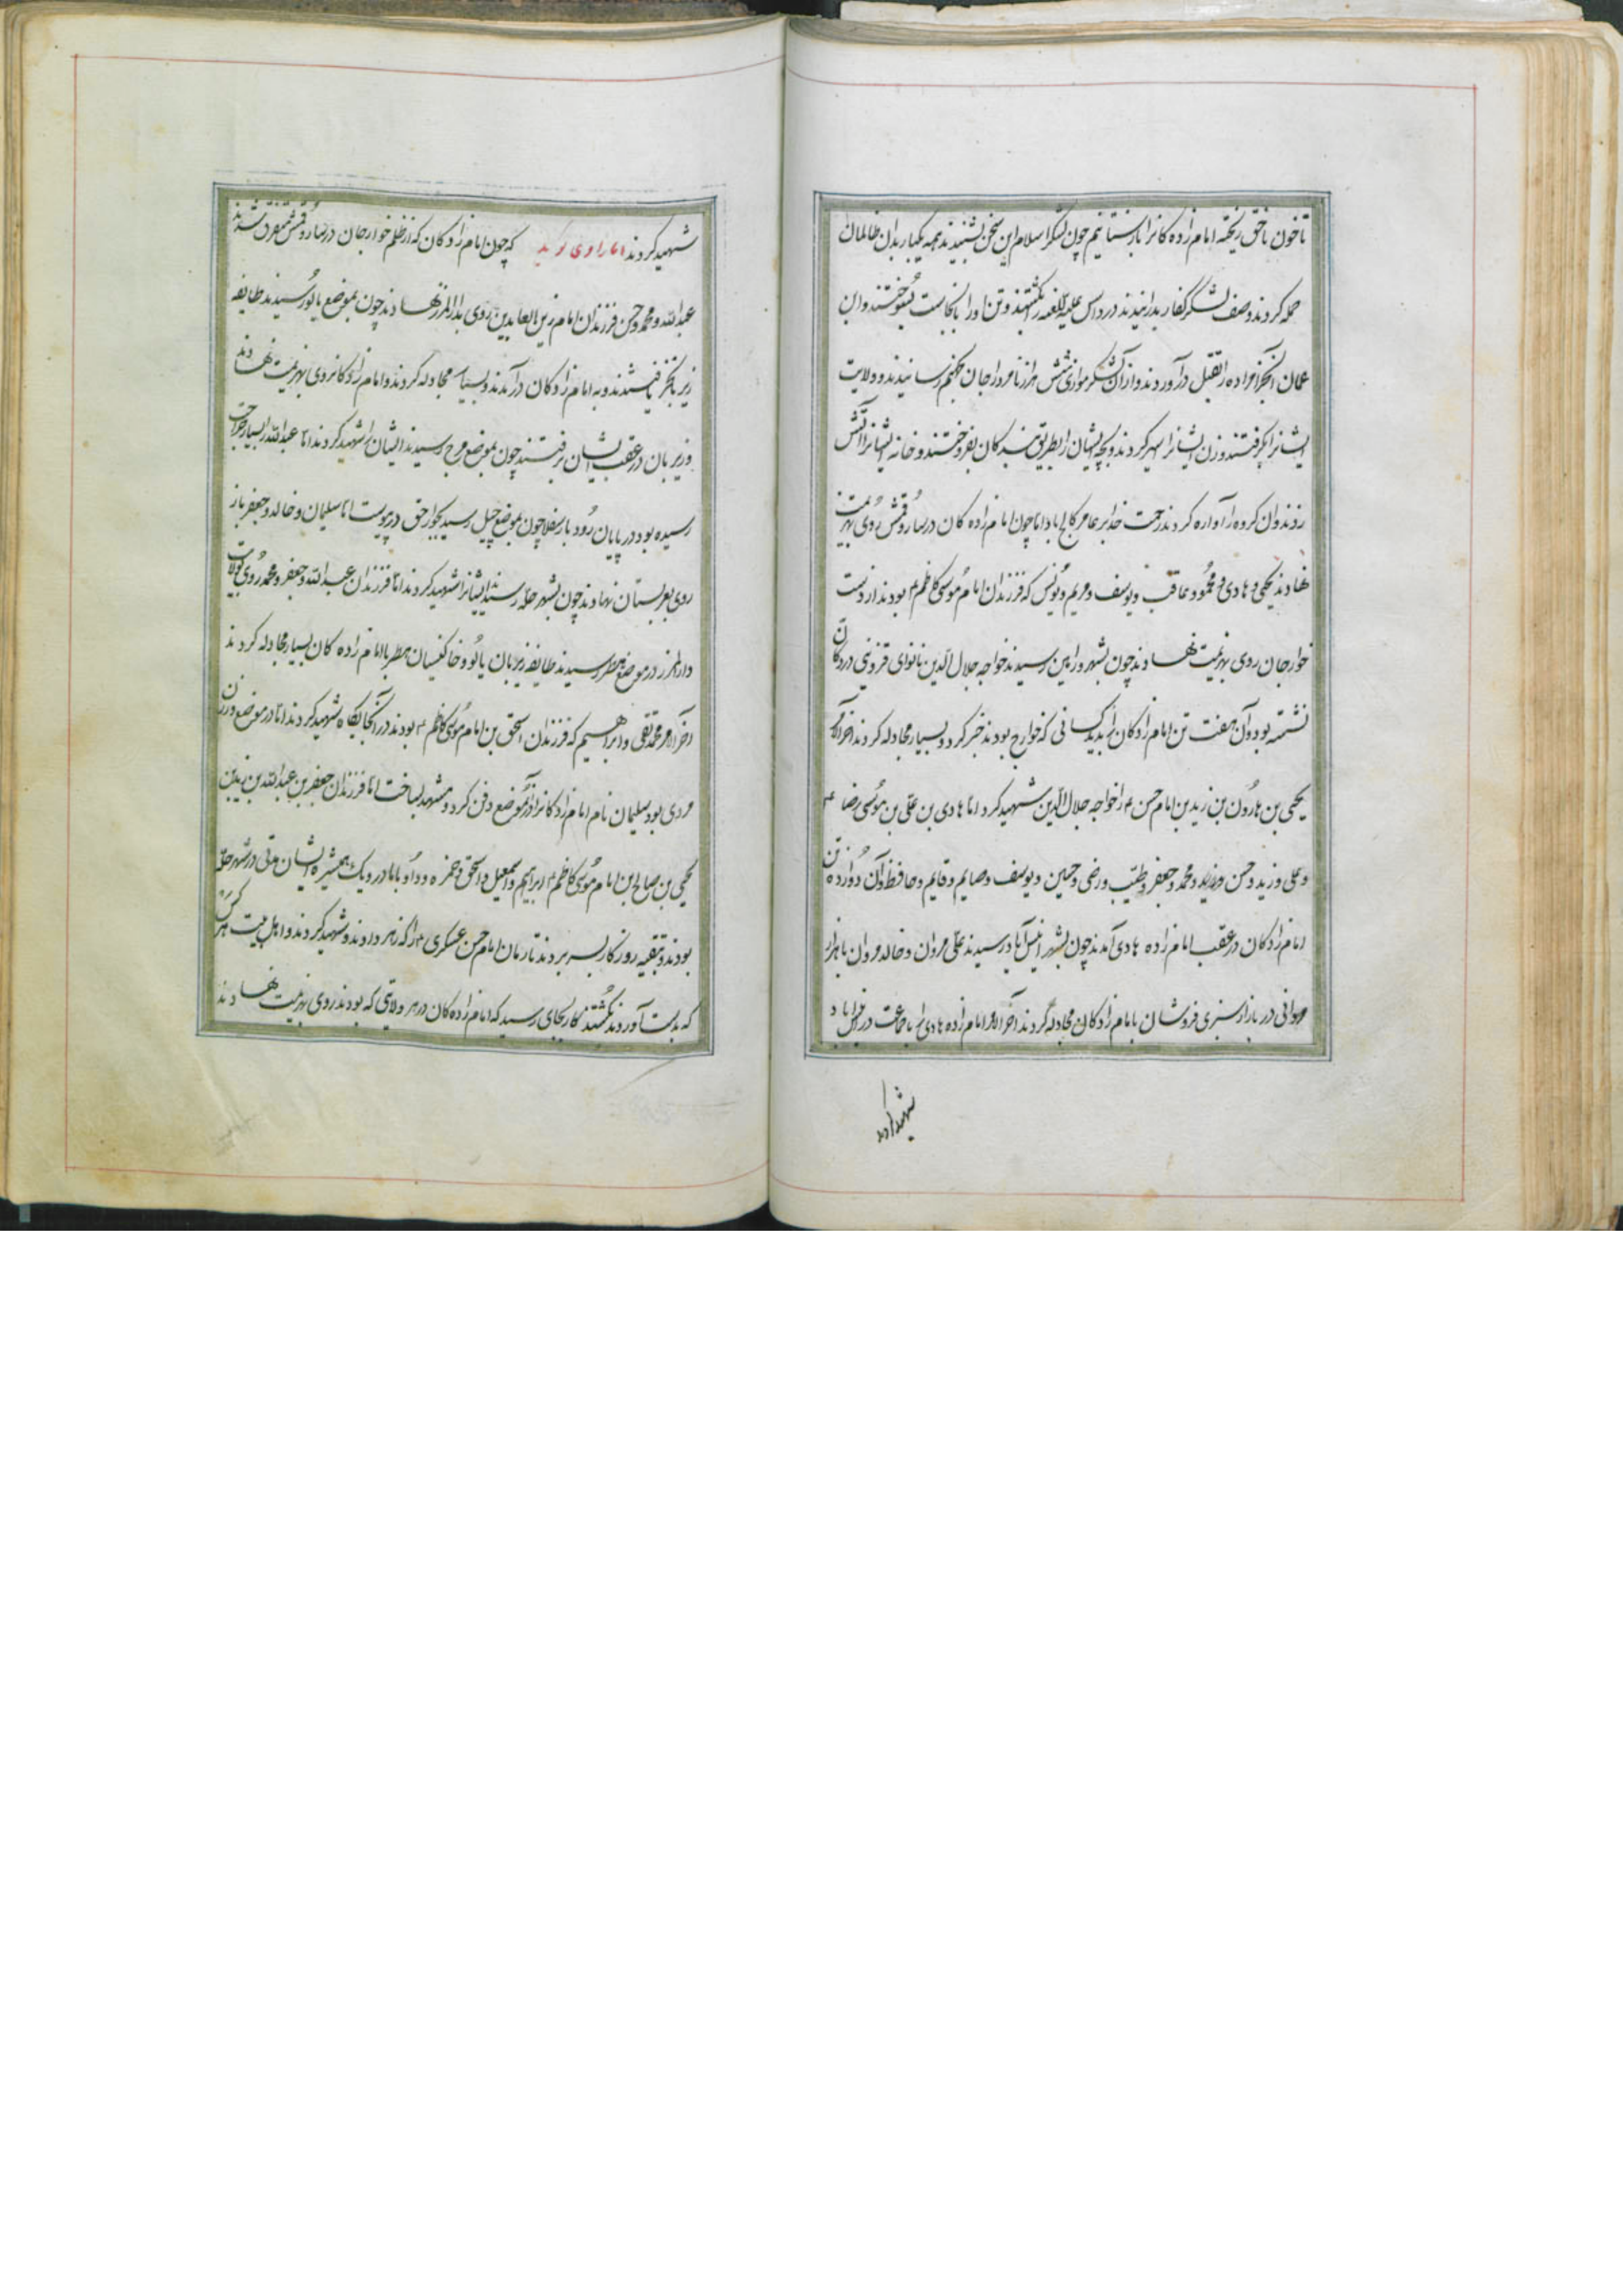 تا خون ناحق ریخته امام زاده کانرا بازستانیم چون لشکر اسلام این سخن بشنیدند همه یکبار بدان ظالمان
حمله کردند و صف لشکر کفار بدرانیدند درداس علیه اللغنه را بکشتند و تن او را بسوختند و ان
را بقتل درآوردند و از آن لشکر موازی شش هزار نامرد خارجان بجهنم رسانیدند و ولایت
ایشانرا بگرفتند و زن ایشانرا اسیر کردند و بچه ایشان را بطریق بنده کان بفروختند و خانه ایشانرا آتش
زدند و ان کروه را آواره کردند رحمت خدا بر عامر باد اما چون امام زاده کان در سارو قمش روی بهزیمت
نهادند یحیی و هادی و محمود و عاقب و یوسف و مریم و یونس که فرزندان امام موسی کاظم بودند از دست
خوارجان روی بهزیمت نهادند چون بشهر ورامین رسیدند خواجه جلال الدین نانوای قزوینی در دکان
نشسته بود و آن هفت تن امام زادکان را بدید کسانی که خوارج بودند خبر کرد و بسیار مجادله کردند اخر الامر
یحیی بن هارون بن زید بن امام حسن را خواجه جلال الدین شهید کرد اما هادی بن علی بن موسی رضا
و علی و زید و حسن و محمد و جعفر و طیب و رضی و حسین و یوسف و صایم و قایم و حافظ و آن دوازده تن
امام زادکان در عقب امام زاده هادی آمدند چون بشهر رسیدند علی مروان و خالد مروان با هزار
مروانی در بازار سبزی فروشان با امام زادکان مجادله کردند آخر الامر امام زاده هادی را با جماعت در
شهید کردند
شهید کردند اما راوی کوید که چون امام زادکان که از ظلم خوارجان در سارو قمش متفرق شدند
عبدالله و محمد و حسن فرزندان امام زین العابدین روی بدارالمرز نهادند چون بموضع یالو رسیدند طایفه
زیر بان خبر یافتند و به امام زادکان درآمدند و بسیار مجادله کردند و امام زادکان روی بهزیمت نهادند
و زیر بان در عقب ایشان برفتند چون بموضع مرج رسیدند ایشان را شهید کردند اما عبدالله را بسیار جراحت
رسیده بود در پایان رود بار سفلا چون بموضع رسید بجوار حق در پیوست اما سلیمان و خالد و جعفر باز
روی بعربستان نهادند چون بشهر حله رسیدند ایشانرا شهید کردند اما فرزندان عبدالله و جعفر و محمد روی بولایت
دارالمرز در موضع رسیدند طایفه زیر بان یالو و با امام زاده کان بسیار مجادله کردند
آخر الامر محمد تقی و ابراهیم که فرزندان اسحق بن امام موسی کاظم بودند در آنجایکاه شهید کردند اما در موضع
مردی بود سلیمان نام امام زادکانرا در آن موضع دفن کرد و مشهد بساخت اما فرزندان جعفر بن عبدالله بن زید بن
یحیی بن صالح بن امام موسی کاظم ابراهیم و اسمعیل و اسحق و حمزه و داود با مادر و یک همشیره ایشان مدتی در شهر حله
بودند و بتقیه روزکار بسر بردند تا زمان امام حسن عسکری را که زهر دادند و شهید کردند و اهل بیت هر کس را
که بدست آوردند بکشتند کار بجای رسید که امام زاده کان در هر ولایتی که بودند روی بهزیمت نهادند